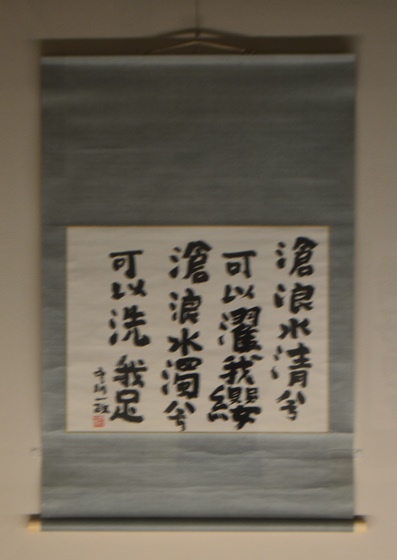 滄浪水清兮
可以濯我纓
滄浪水濁兮
可以洗我足